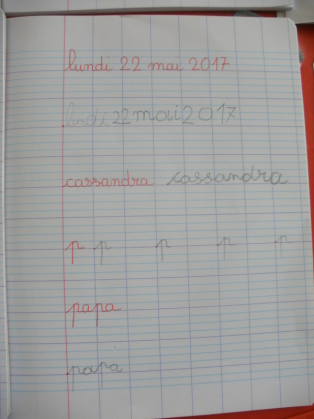 lundi 22 mai 2017
lundi 22 mai 2017
cassandra cassandra
p p p p p
papa
papa